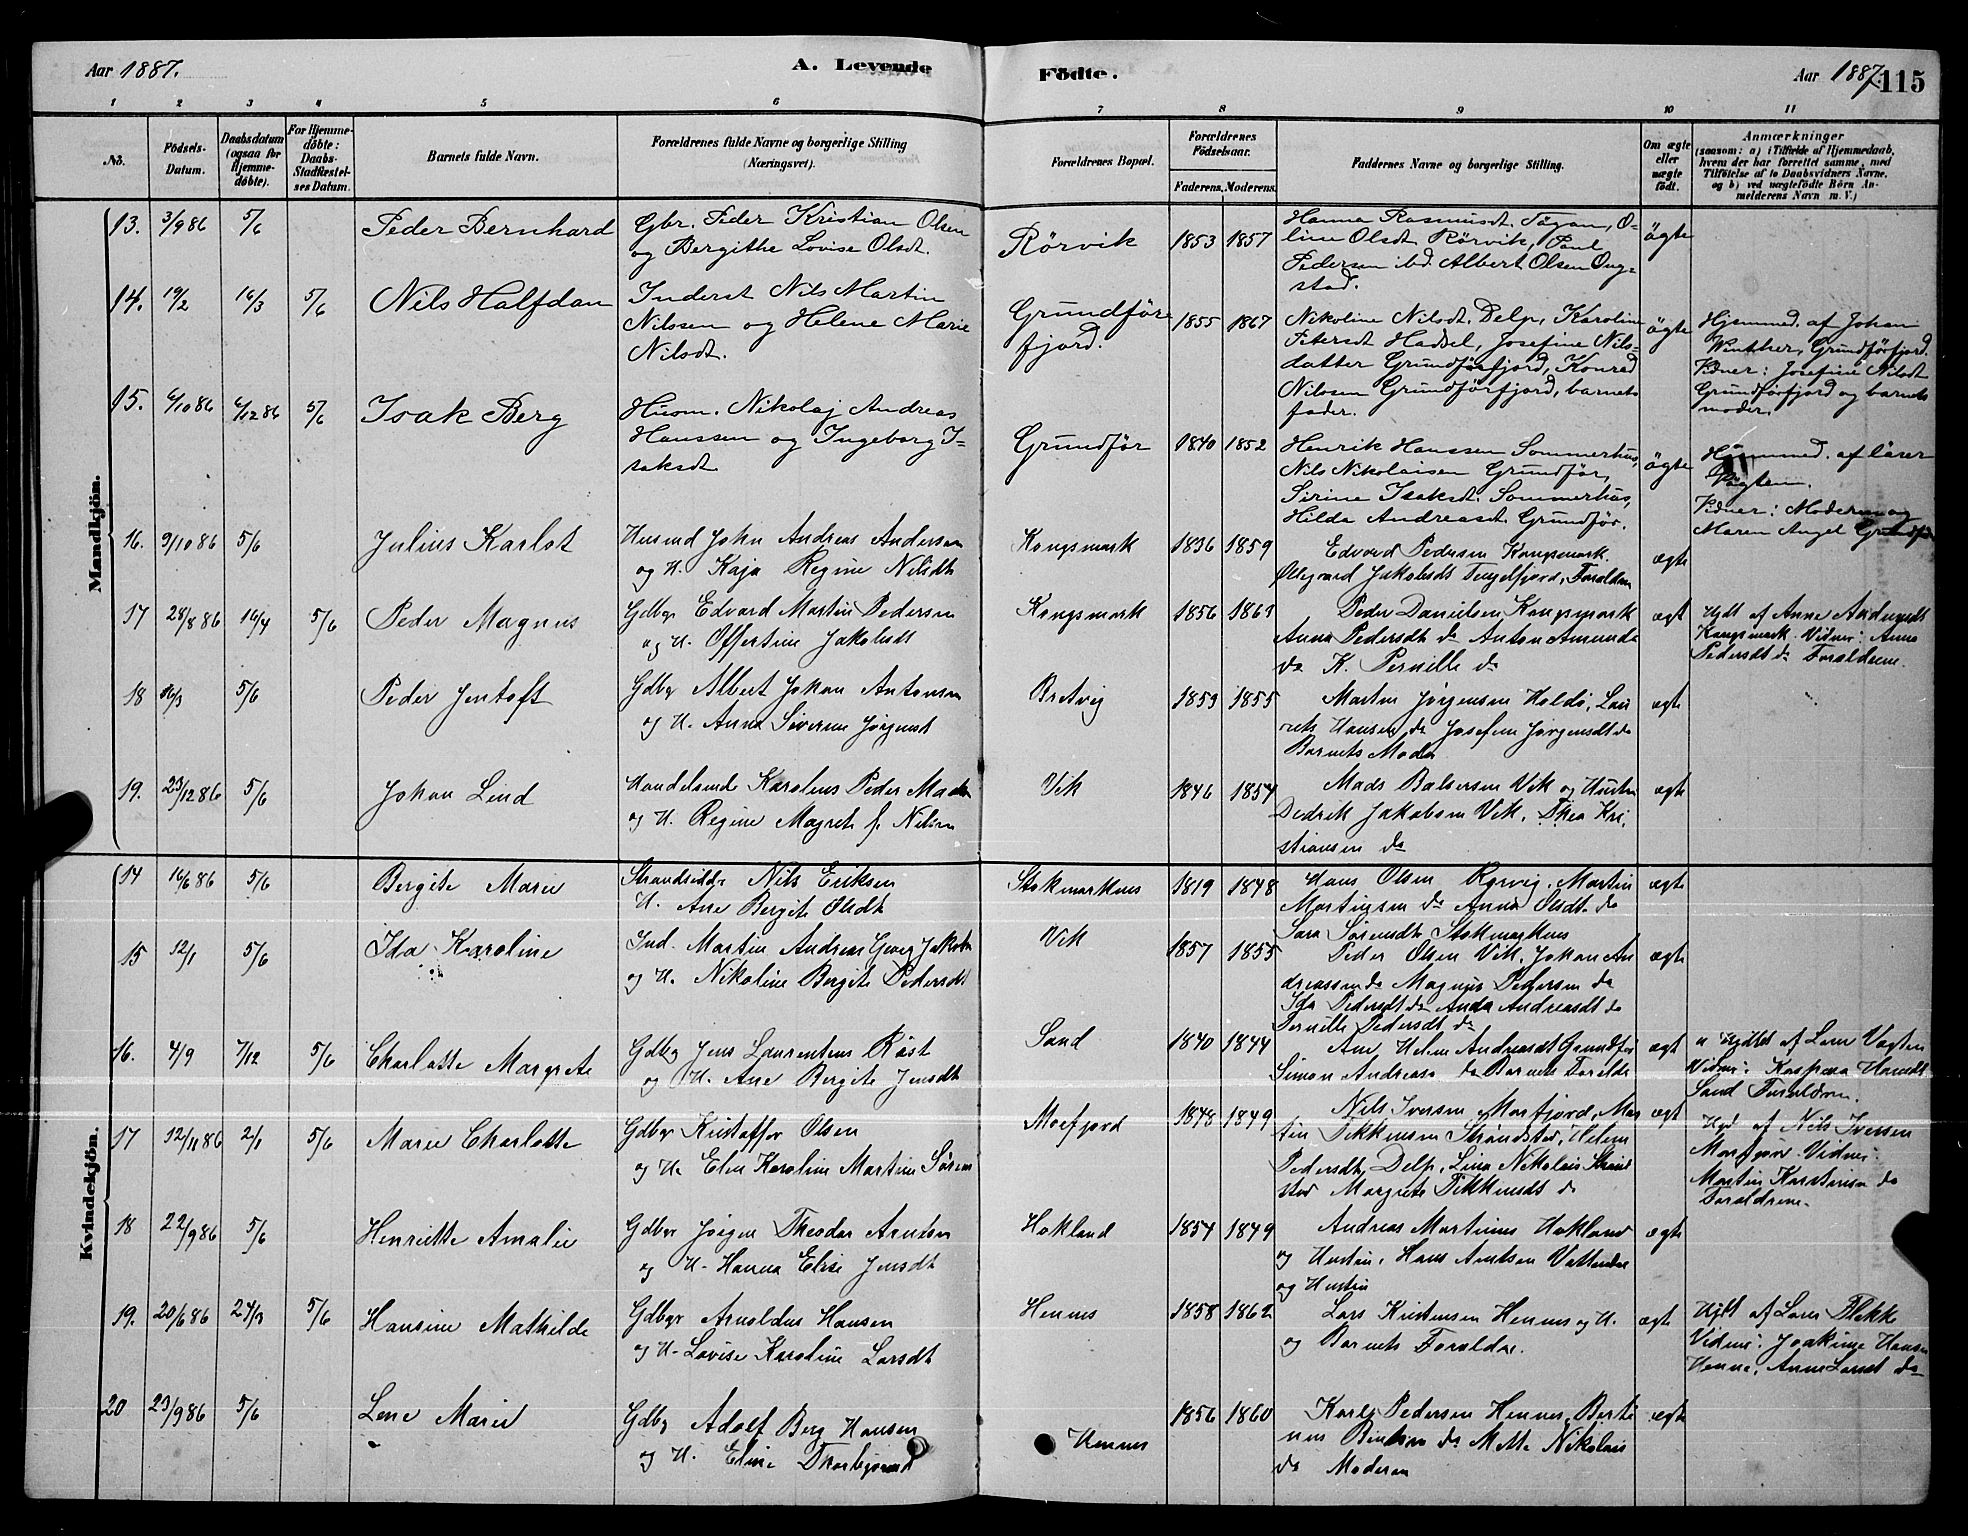 Aar 1887.
A. Levende
Födte.
Aar 1887.
115
1 2 3 4 5 6 7 8 9 10 11
No.
Födsels-
Datum.
Daabsdatum
(ogsaa for
Hjemme-
døbte).
For Hjemme-
døbte:
Daabs-
Stadfæstel-
ses Datum.
Barnets fulde Navn.
Forældrenes fulde Navne og borgerlige Stilling
(Næringsvei).
Forældrenes Bopæl.
Forældrenes
Födselsaar.
Faderens. Moderens.
Faddernes Navne og borgerlige Stilling.
Om ægte
eller
uægte
født.
Anmærkninger
(saasom: a) i Tilfælde af Hjemmedaab,
hvem der har forrettet samme, med
Tilföielse af to Daabsvidners Navne,
og b) ved uægtefödte Börn An-
melderens Navn m. V.)
Mandkjön.
13. 3/9 86 5/6 Peder Bernhard
Gbr. Peder Kristian Olsen
og Bergithe Lovise Olsdt.
Rörvik 1853 1857
Hanna Rasmusdt. O-
line Olsdt Rörvik, Paul
Pedersen ibd. Albert Olsen Ong-
stad.
ägte
14. 19/2 16/3 5/6 Nils Halfdan
Inderst Nils Martin
Nilssen og Helene Marie
Nilsdt.
Grundföre
fjord.
1855 1867
Nikoline Nilsdt. Delp, Karoline
Petersdt Hadsel, Josefine Nils-
datter Grundförfjord, Konrad
Nilssen Grundförfjord, barnets
fader.
ägte
Hjemmed. af Johan
Winther, Grundförfjord.
Vidner: Josefine Nilsdt
Grundförfjord og barnets
moder.
15. 6/10 86 6/12 86 5/6 Isak Berg
Husm. Nikolaj Andreas
Hanssen og Ingeborg I-
saksdt
Grundför 1840 1852
Henrik Hanssen Sommerhus,
Nils Nikolaisen Grundför,
Serine Isaksdt. Sommerhus,
Hilda Andreasdt. Grundför.
ägte
Hjemmed. af lærer
Vogten.
Vidner: Moderen og
Maren Angel
16. 9/10 86 5/6 Julius Karlot
Husmd John Andreas Andersen
og H. Kaja Regine Nilsdt
Kongsmark 1836 1859
Edvard Pedersen Kongsmark
Jakobsdt Tengelfjord, Foraldrene
ægte
17 28/8 86 16/4 5/6 Peder Magnus
Gdbgr Edvard Martin Pedersen
og H. Offertine Jakobsdt
Kongsmark 1856 1863
Peder Danielsen Kongsmark
Anna Pedersdt do Anton Amunds
do K. Pernille do
ægt
Hjdt af Anne Andreasdt
Kongsmark. Vidner: Anna
Pedersdt do Foraldrene.
18 16/3 5/6 Peder Jentoft
Gdbgr Albert Johan Antonsen
og H. Anna Severine Jørgensdt
Bretvig 1859 1855
Martin Jørgensen Holdö, Lau
rits Hansen do Josefine Jørgensdt do
Barnets Moder
ægte
19. 23/12 86 5/6 Johan Lind
Handelsmd Karolius Peder Madsen
og H. Regine Magreth f. Nilsen
Vik 1846 1854
Mads Balsersen Vik og Hustru
Dedrik Jakobsen Vik, Thea Kri
stiansen do
ægte
Kvindekjön.
14 16/6 86 5/6 Bergite Marie
Nils Eriksen
H. Ane Bergite Olsdt
Stokmarknes 1819 1848
Hans Olsen Rørvig. Martin
Martinsen do Anna Olsdt. do
Sara Sørensdt Stokmarknes
ægte
15 12/1 5/6 Ida Karoline
Ind. Martin Andreas Georg Jakobs
og H. Nikoline Bergite Pedersdt
Vik 1857 1855
Peder Olsen Vik, Johan An
dreassen do Magnus Pedersen do
Ida Pedersdt do Anna Andreasdt do
Pernille Pedersdt do
ægte
16. 4/9 7/12 5/6 Charlotte Margrete
Gdbgr Jens Laurentius Røst
og H. Ane Bergite Jensdt
Sand 1840 1844
Ane Helene Andreasdt Grundför
Simon Andreass do Barnets Foraldre
ægt
Hjdbt af Lærer Vogten
Vidner: Kaspara Hansdt
Sand Foraldrene.
17 12/11 86 2/1 5/6 Marie Charlotte
Gdbgr Kristoffer Olsen
og H. Elen Karoline Martine Søren
Morfjord 1848 1849
Nils Iversen Morfjord, Mar
tin Strandstad, Helene
Pedersdt, Delp, Lina Nikolais Strand
stad Margrete do
ægt
Hjd. af Nils Iversen
Morfjord Vidner:
Martin do
Foraldrene.
18 22/9 86 5/6 Henriette Amalie
Gdbgr Jørgen Theodor Arntsen
og H. Hanna Elise Jensdt
Hokland 1854 1849
Andreas Martinus Hokland
og Hustru, Hans Arntsen
og Hustru
ægte
19. 20/6 86 24/3 5/6 Hansine Mathilde
Gdbgr Arnoldus Hansen
og H. Lovise Karoline Larsdt
Hennes 1858 1862
Lars Kristensen Hennes og H.
og Barnets Foraldre.
ægte
Hjdt af Lars Flekke
Vidner: Joakime Hansen
Hennes, Anne Larsdt do
20 23/9 86 5/6 Lene Marie
Gdbgr Adolf Berg Hansen
og H. Eline Thorbjørnsdt
Hennes 1856 1860
Karl Pedersen Hennes, Berti
nus do Mette Nikolais
do Moderen
ægte